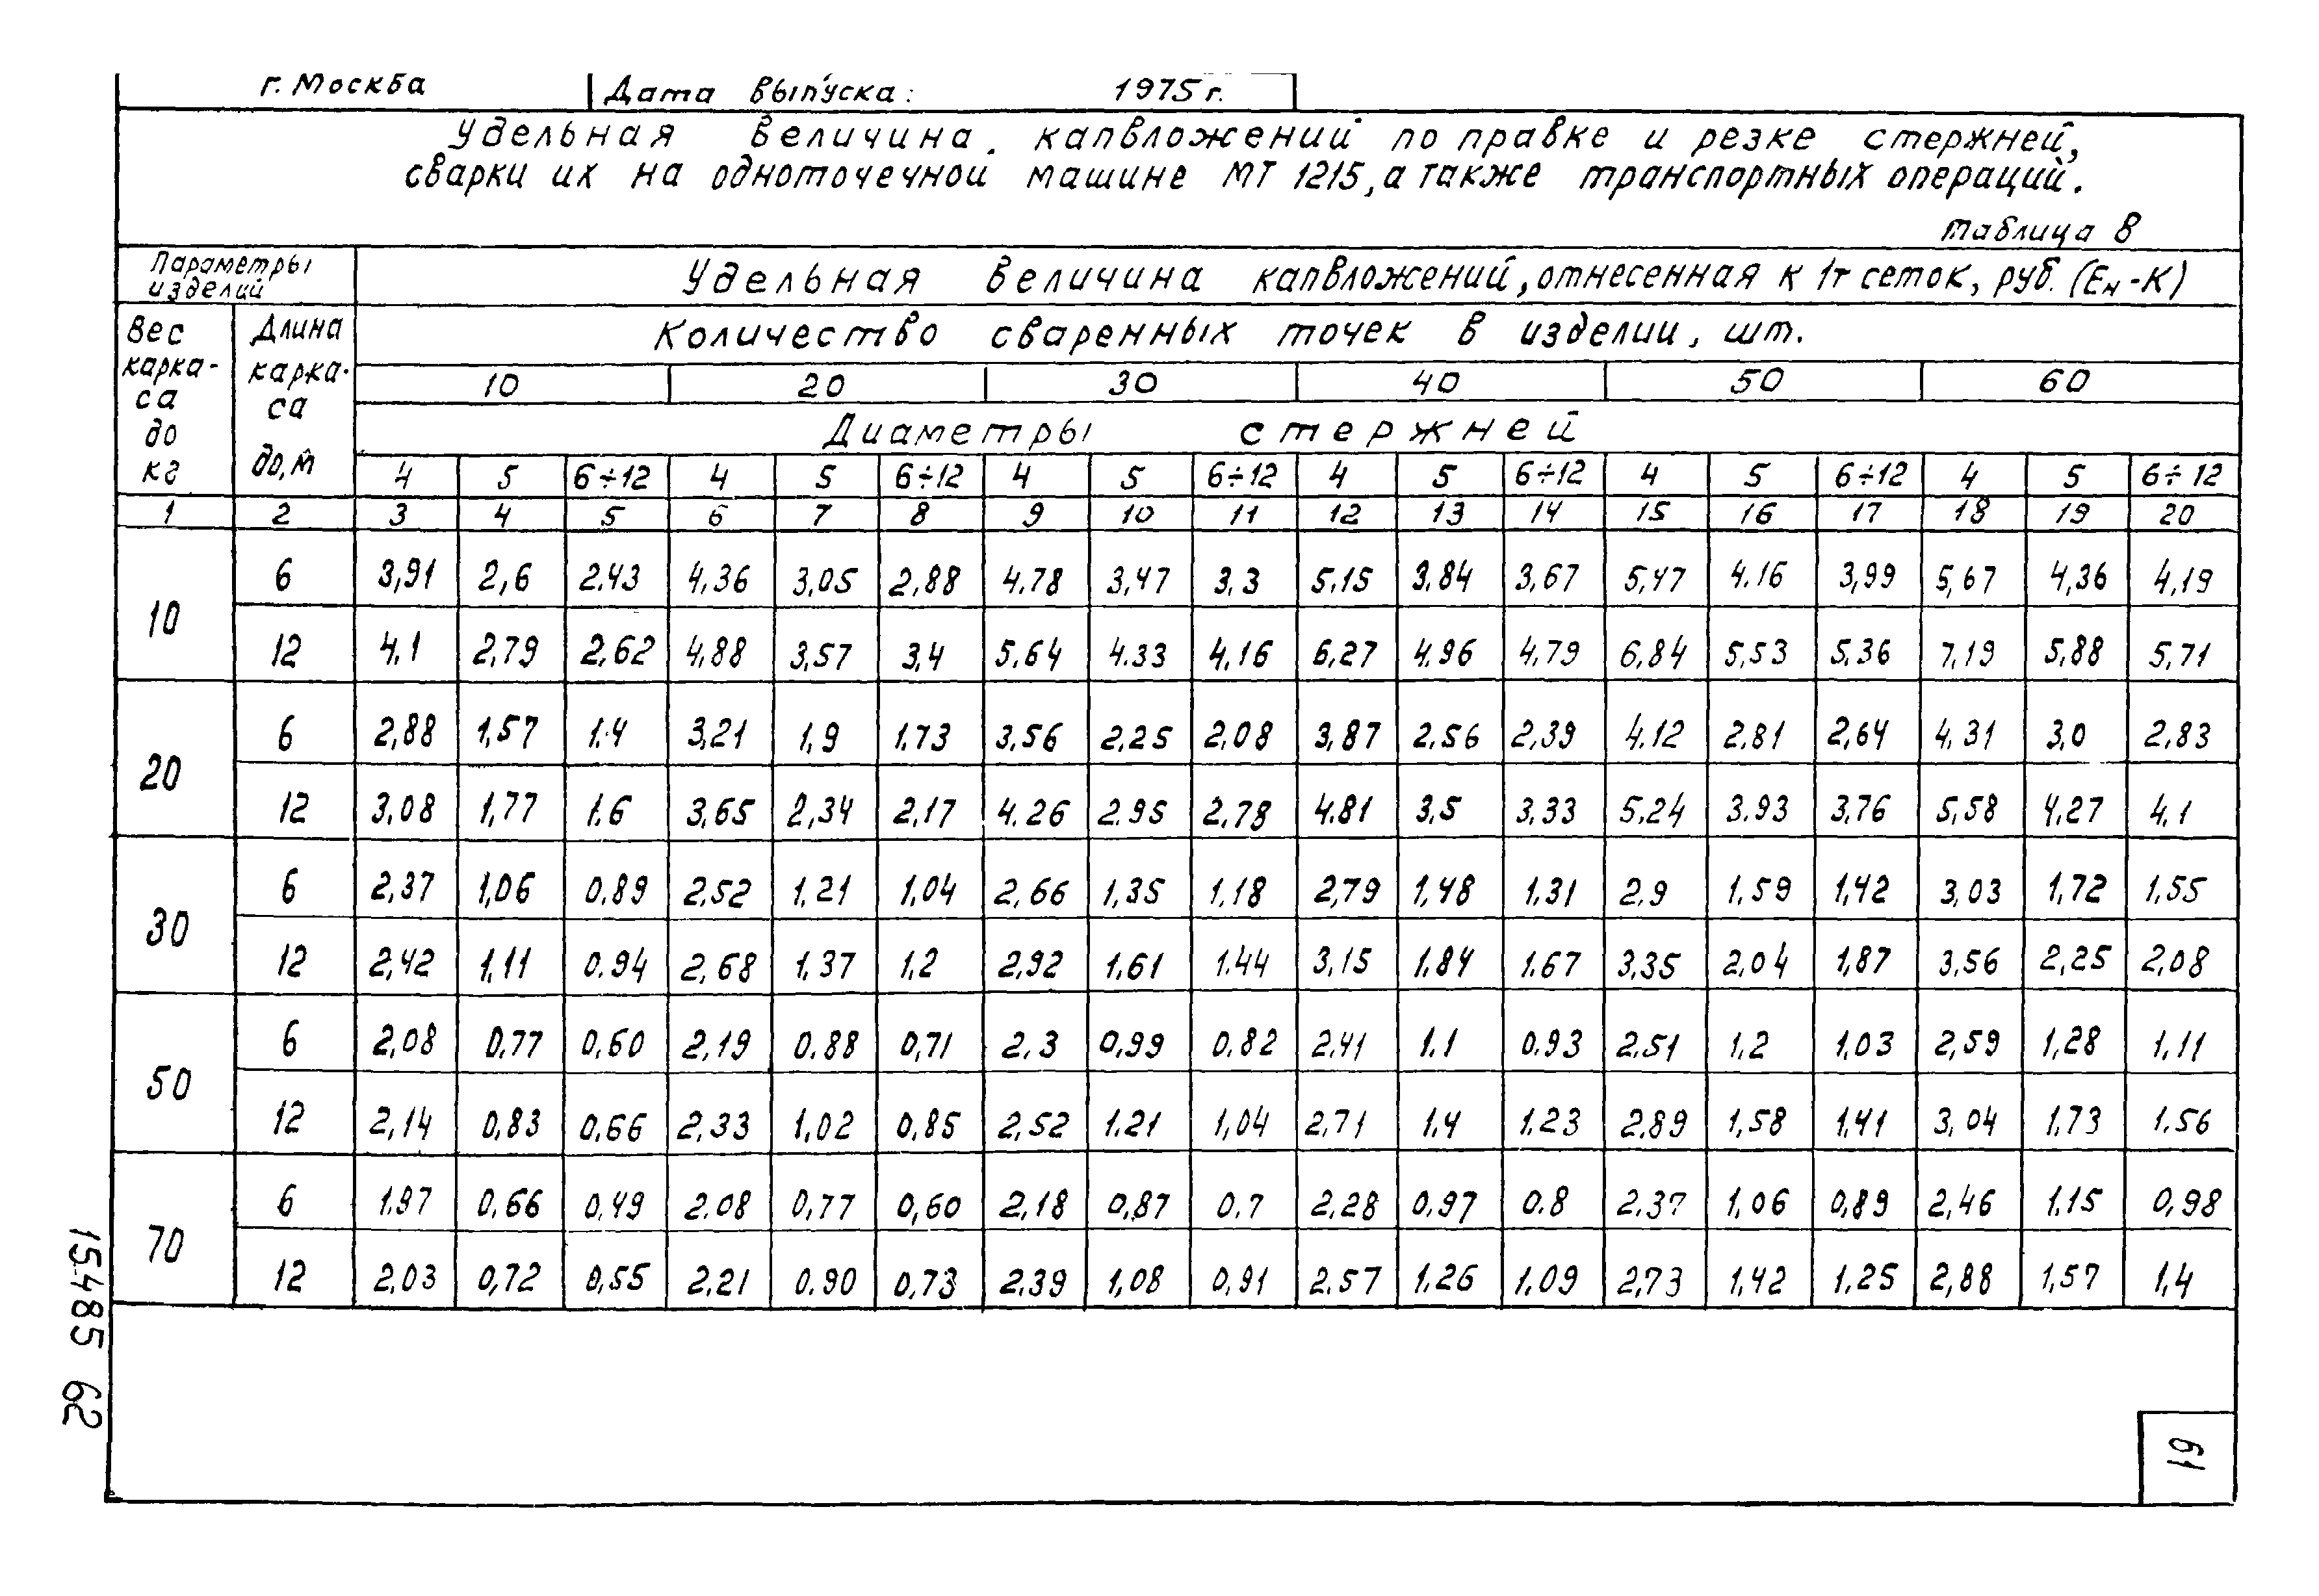 г. Москва Дата выпуска: 1975 г.
Удельная величина капвложений по правке и резке стержней,
сварки их на одноточечной машине МТ 1215, а также транспортных операций.
таблица 8
Параметры изделий Удельная величина капвложений, отнесенная к 1т сеток, руб. (Ен-К)
Вес каркаса до кг Длина каркаса до, м Количество сваренных точек в изделии, шт.
10 20 30 40 50 60
Диаметры стержней
4 5 6÷12 4 5 6÷12 4 5 6÷12 4 5 6÷12 4 5 6÷12 4 5 6÷12
1 2 3 4 5 6 7 8 9 10 11 12 13 14 15 16 17 18 19 20
10 6 3,91 2,6 2.43 4.36 3,05 2,88 4.78 3,47 3.3 5.15 3,84 3,67 5,47 4.16 3,99 5,67 4,36 4,19
12 4.1 2,79 2,62 4,88 3,57 3,4 5,64 4.33 4,16 6,27 4,96 4,79 6,84 5,53 5,36 7,19 5,88 5,71
20 6 2,88 1,57 1.4 3,21 1,9 1.73 3,56 2,25 2,08 3,87 2.56 2,39 4.12 2.81 2,64 4,31 3,0 2,83
12 3,08 1,77 1.6 3,65 2,34 2,17 4.26 2.95 2,78 4.81 3,5 3,33 5,24 3.93 3,76 5,58 4,27 4.1
30 6 2,37 1,06 0,89 2,52 1,21 1,04 2,66 1,35 1.18 2,79 1,48 1.31 2,9 1,59 1,42 3,03 1,72 1,55
12 2,42 1,11 0.94 2,68 1.37 1,2 2,92 1.61 1.44 3,15 1.84 1.67 3,35 2.04 1,87 3,56 2,25 2,08
50 6 2,08 0,77 0,60 2,19 0.88 0,71 2,3 0,99 0.82 2,41 1.1 0.93 2.51 1.2 1,03 2,59 1,28 1,11
12 2,14 0,83 0,66 2,33 1,02 0,85 2,52 1.21 1,04 2,71 1.4 1.23 2.89 1,58 1.41 3,04 1.73 1.56
70 6 1.97 0,66 0,49 2.08 0,77 0,60 2,18 0,87 0.7 2,28 0,97 0.8 2.37 1,06 0,89 2,46 1.15 0,98
12 2,03 0,72 0,55 2,21 0.90 0,73 2.39 1,08 0,91 2.57 1.26 1.09 2,73 1,42 1.25 2,88 1,57 1,4
15485 62
61